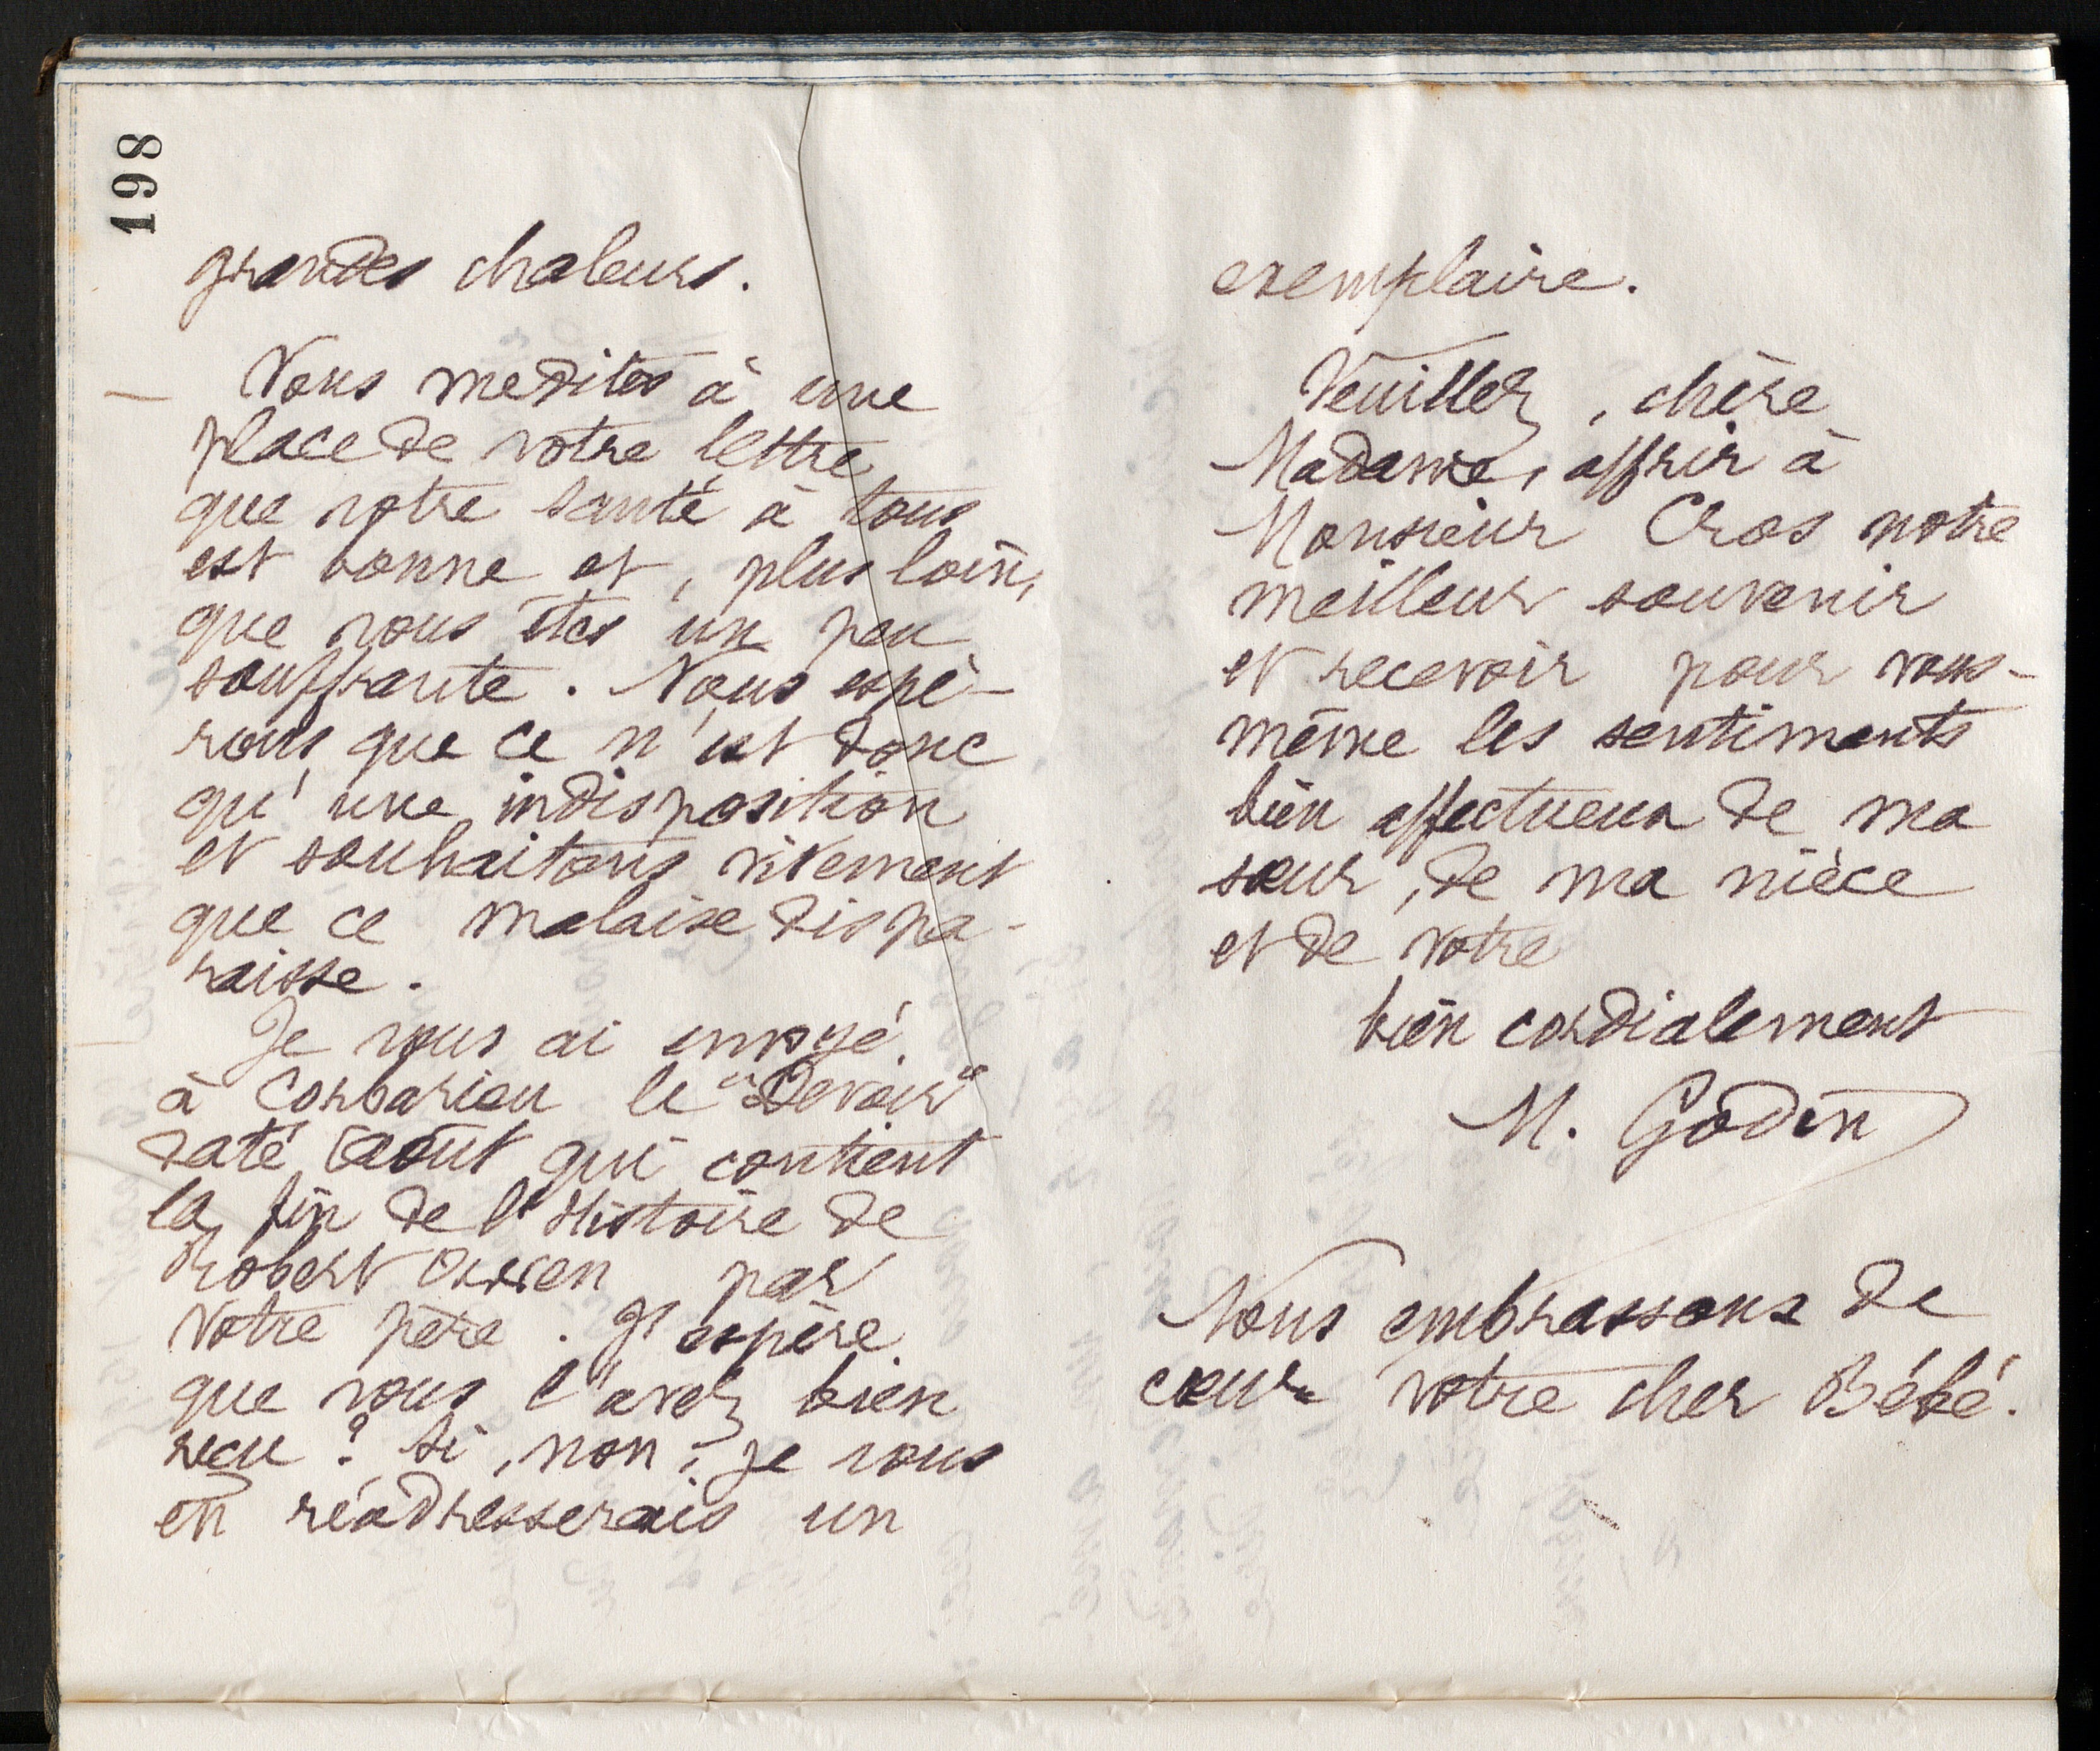 198
grandes chaleurs.
Vous me dites à une
place de votre lettre
que votre santé à tous
est bonne et, plus loin,
que vous êtes un peu
souffrante. Nous espé-
rons que ce n'est donc
qu'une indisposition
et souhaitons vivement
que ce malaise dispa-
raisse.
Je vous ai envoyé
à Corbarieu le "Devoir"
daté août qui contient
la fin de l'Histoire de
Robert Owen par
votre père. J'espère
que vous l'avez bien
reçu? Si, non, je vous
en réadresserais un
exemplaire.
Veuillez, chère
Madame, offrir à
Monsieur Cros notre
meilleur souvenir
et recevoir pour vous-
même les sentiments
bien affectueux de ma
sœur, de ma nièce
et de votre
bien cordialement
M. Godin
Nous embrassons de
cœur votre cher Bébé.